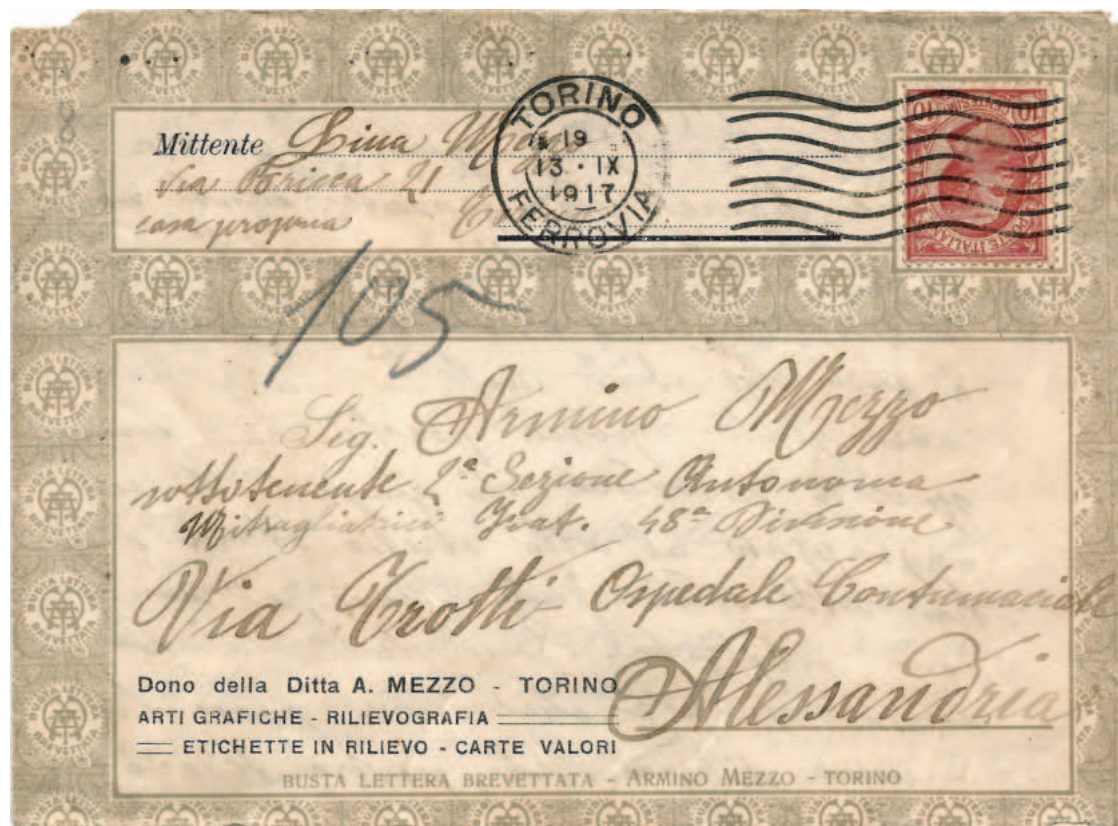 BUSTA LETTERA BREVETTATA
Mittente Lina
Via 21
casa propria
TORINO
19
13 · IX
1917
FERROVIA
POSTE ITALIANE
10 CENTESIMI 10
105
Sig. Armino Mezzo
sottotenente 2ª Sezione Autonoma
Mitragliatrici Fiat. 48ª Divisione
Via Trotti Ospedale Contumaciale
Alessandria
Dono della Ditta A. MEZZO - TORINO
ARTI GRAFICHE - RILIEVOGRAFIA
ETICHETTE IN RILIEVO - CARTE VALORI
BUSTA LETTERA BREVETTATA - ARMINO MEZZO - TORINO